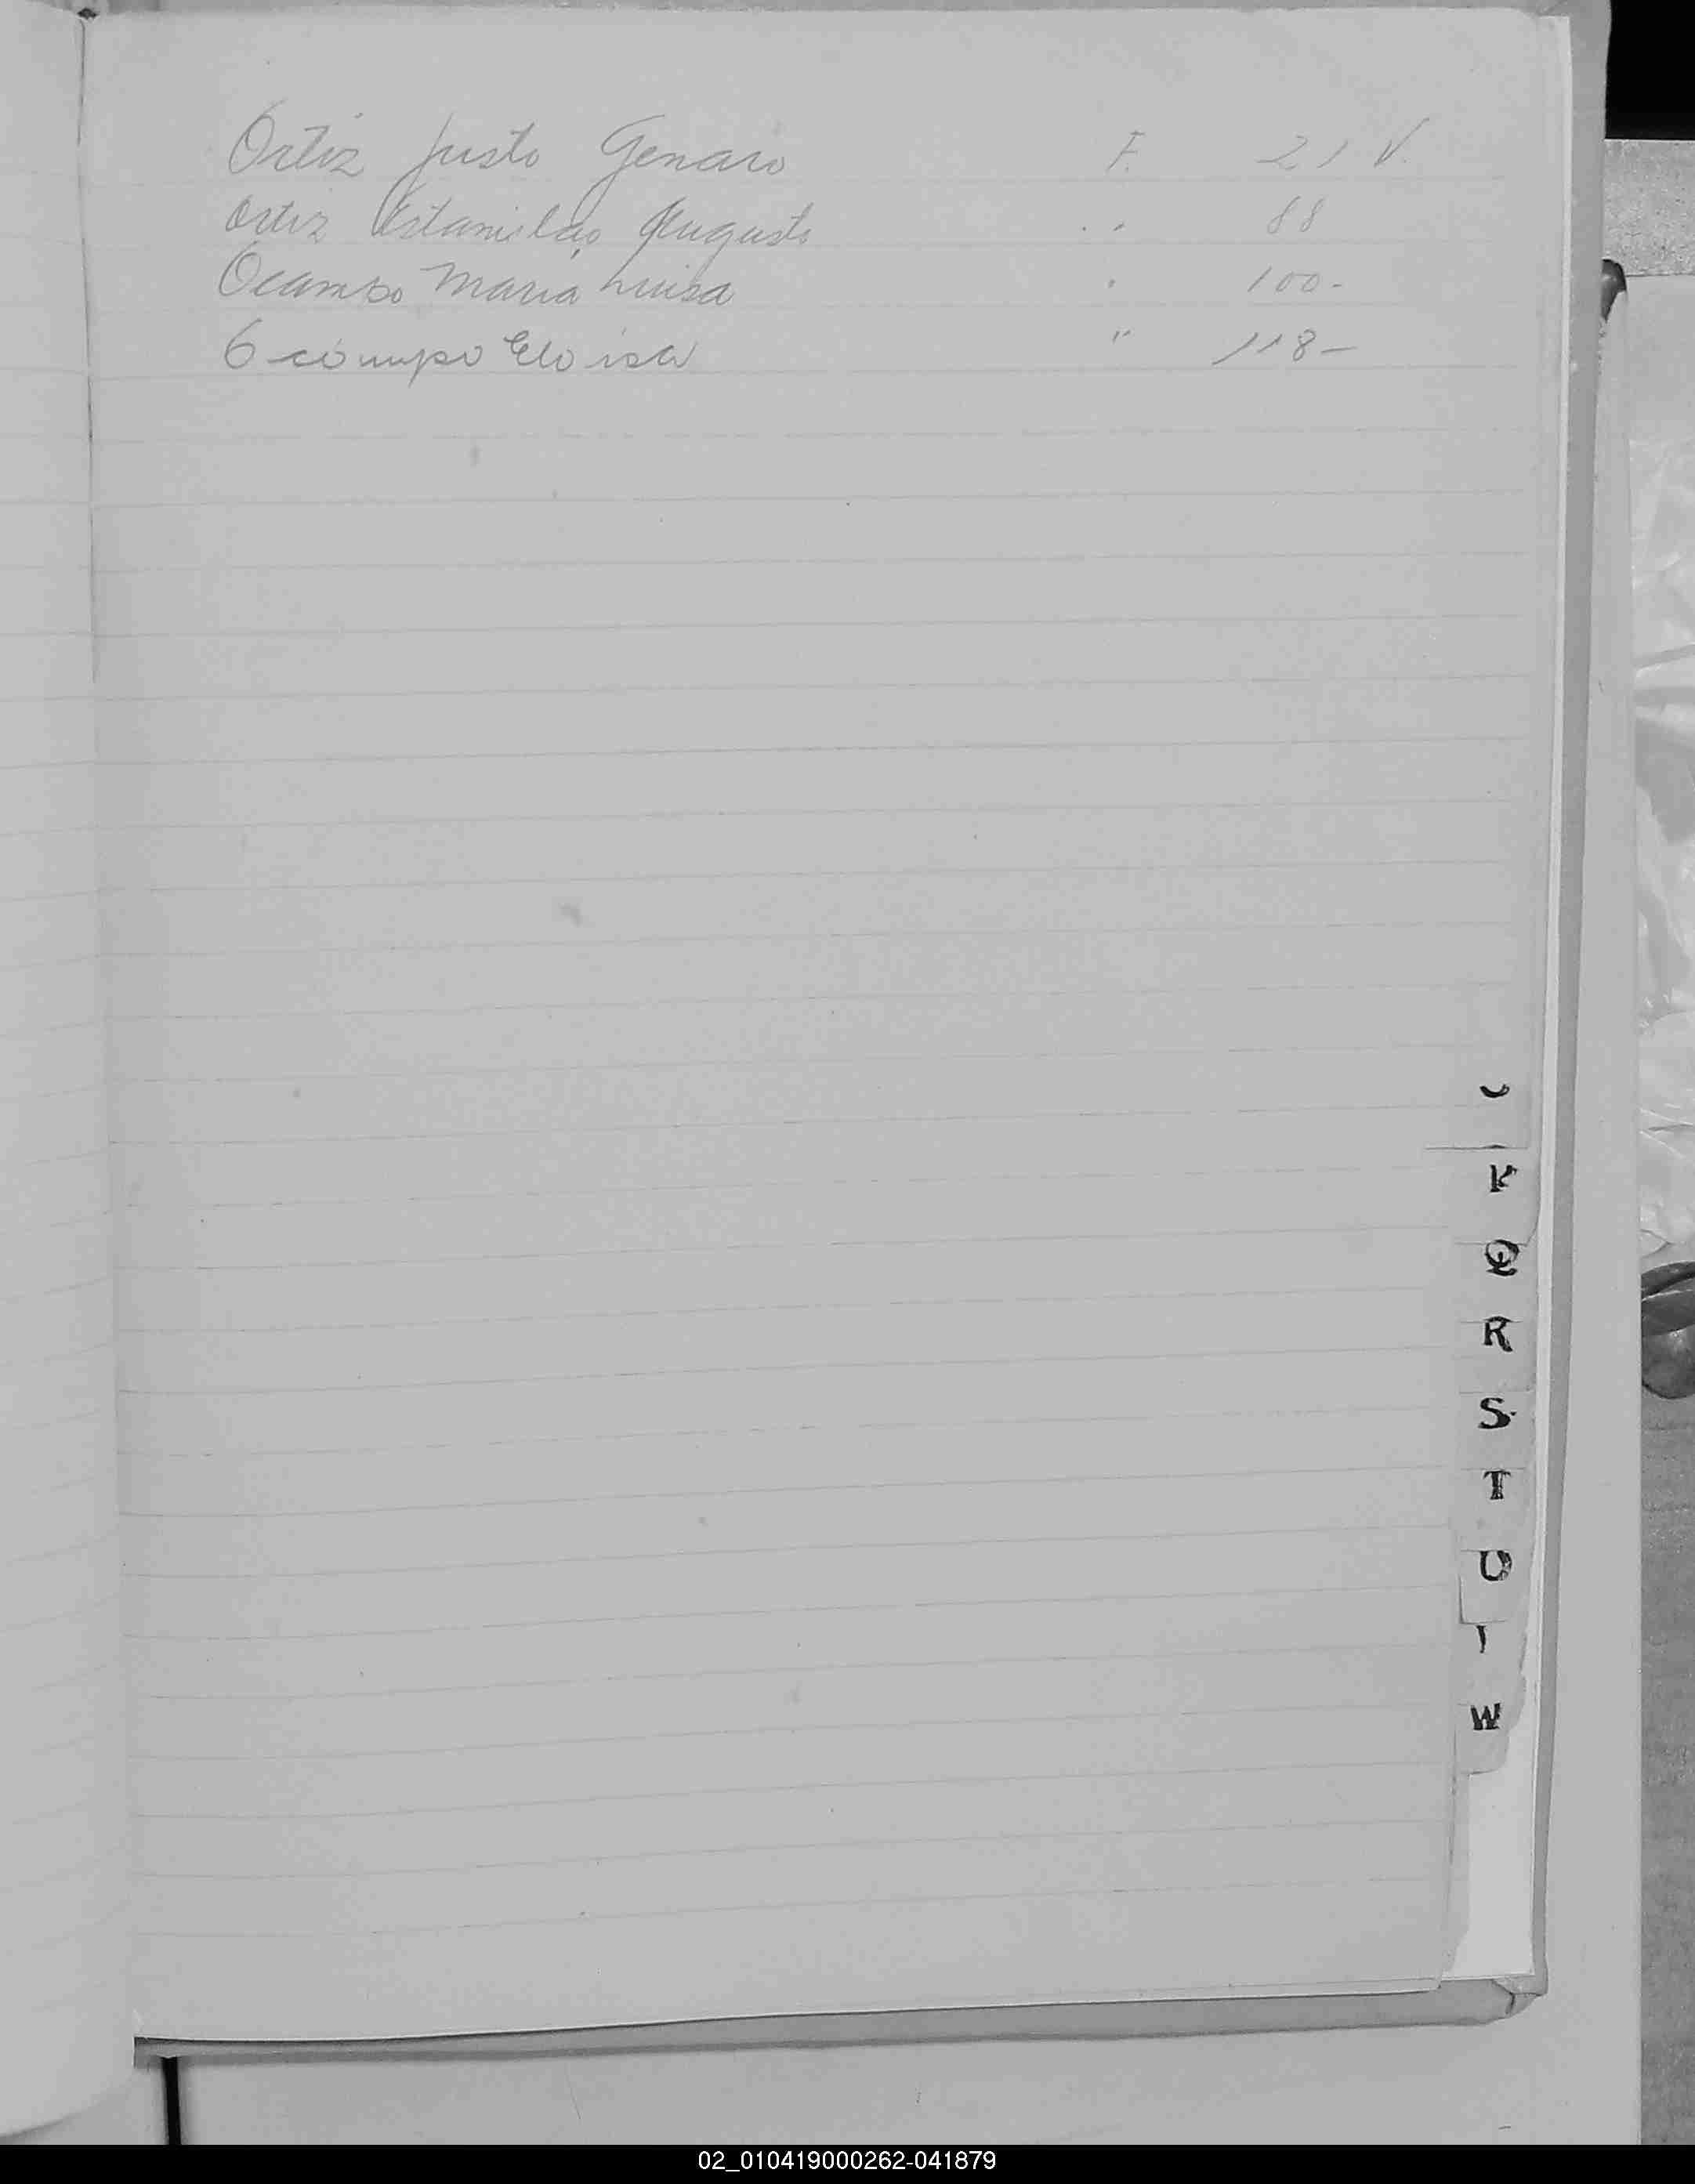 Ortiz Justo Genaro F. 21 V.
Ortiz Estanislao Augusto " 88
Ocampo Maria Luisa " 100-
Ocampo Eloisa " 118-
Q
R
S
T
U
W
02_010419000262-041879